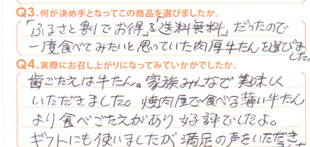 Q3.何が決め手となってこの商品を選びましたか。
「ふるさと割でお得」&「送料無料」だったので
一度食べてみたいと思っていた肉厚牛たんを選びました。
Q4.実際にお召し上がりになってみていかがでしたか。
歯ごたえは牛たん。家族みんなで美味しく
いただきました。焼肉屋で食べる薄い牛たん
より食べごたえがあり好評でしたよ。
ギフトにも使いましたが満足の声をいただき